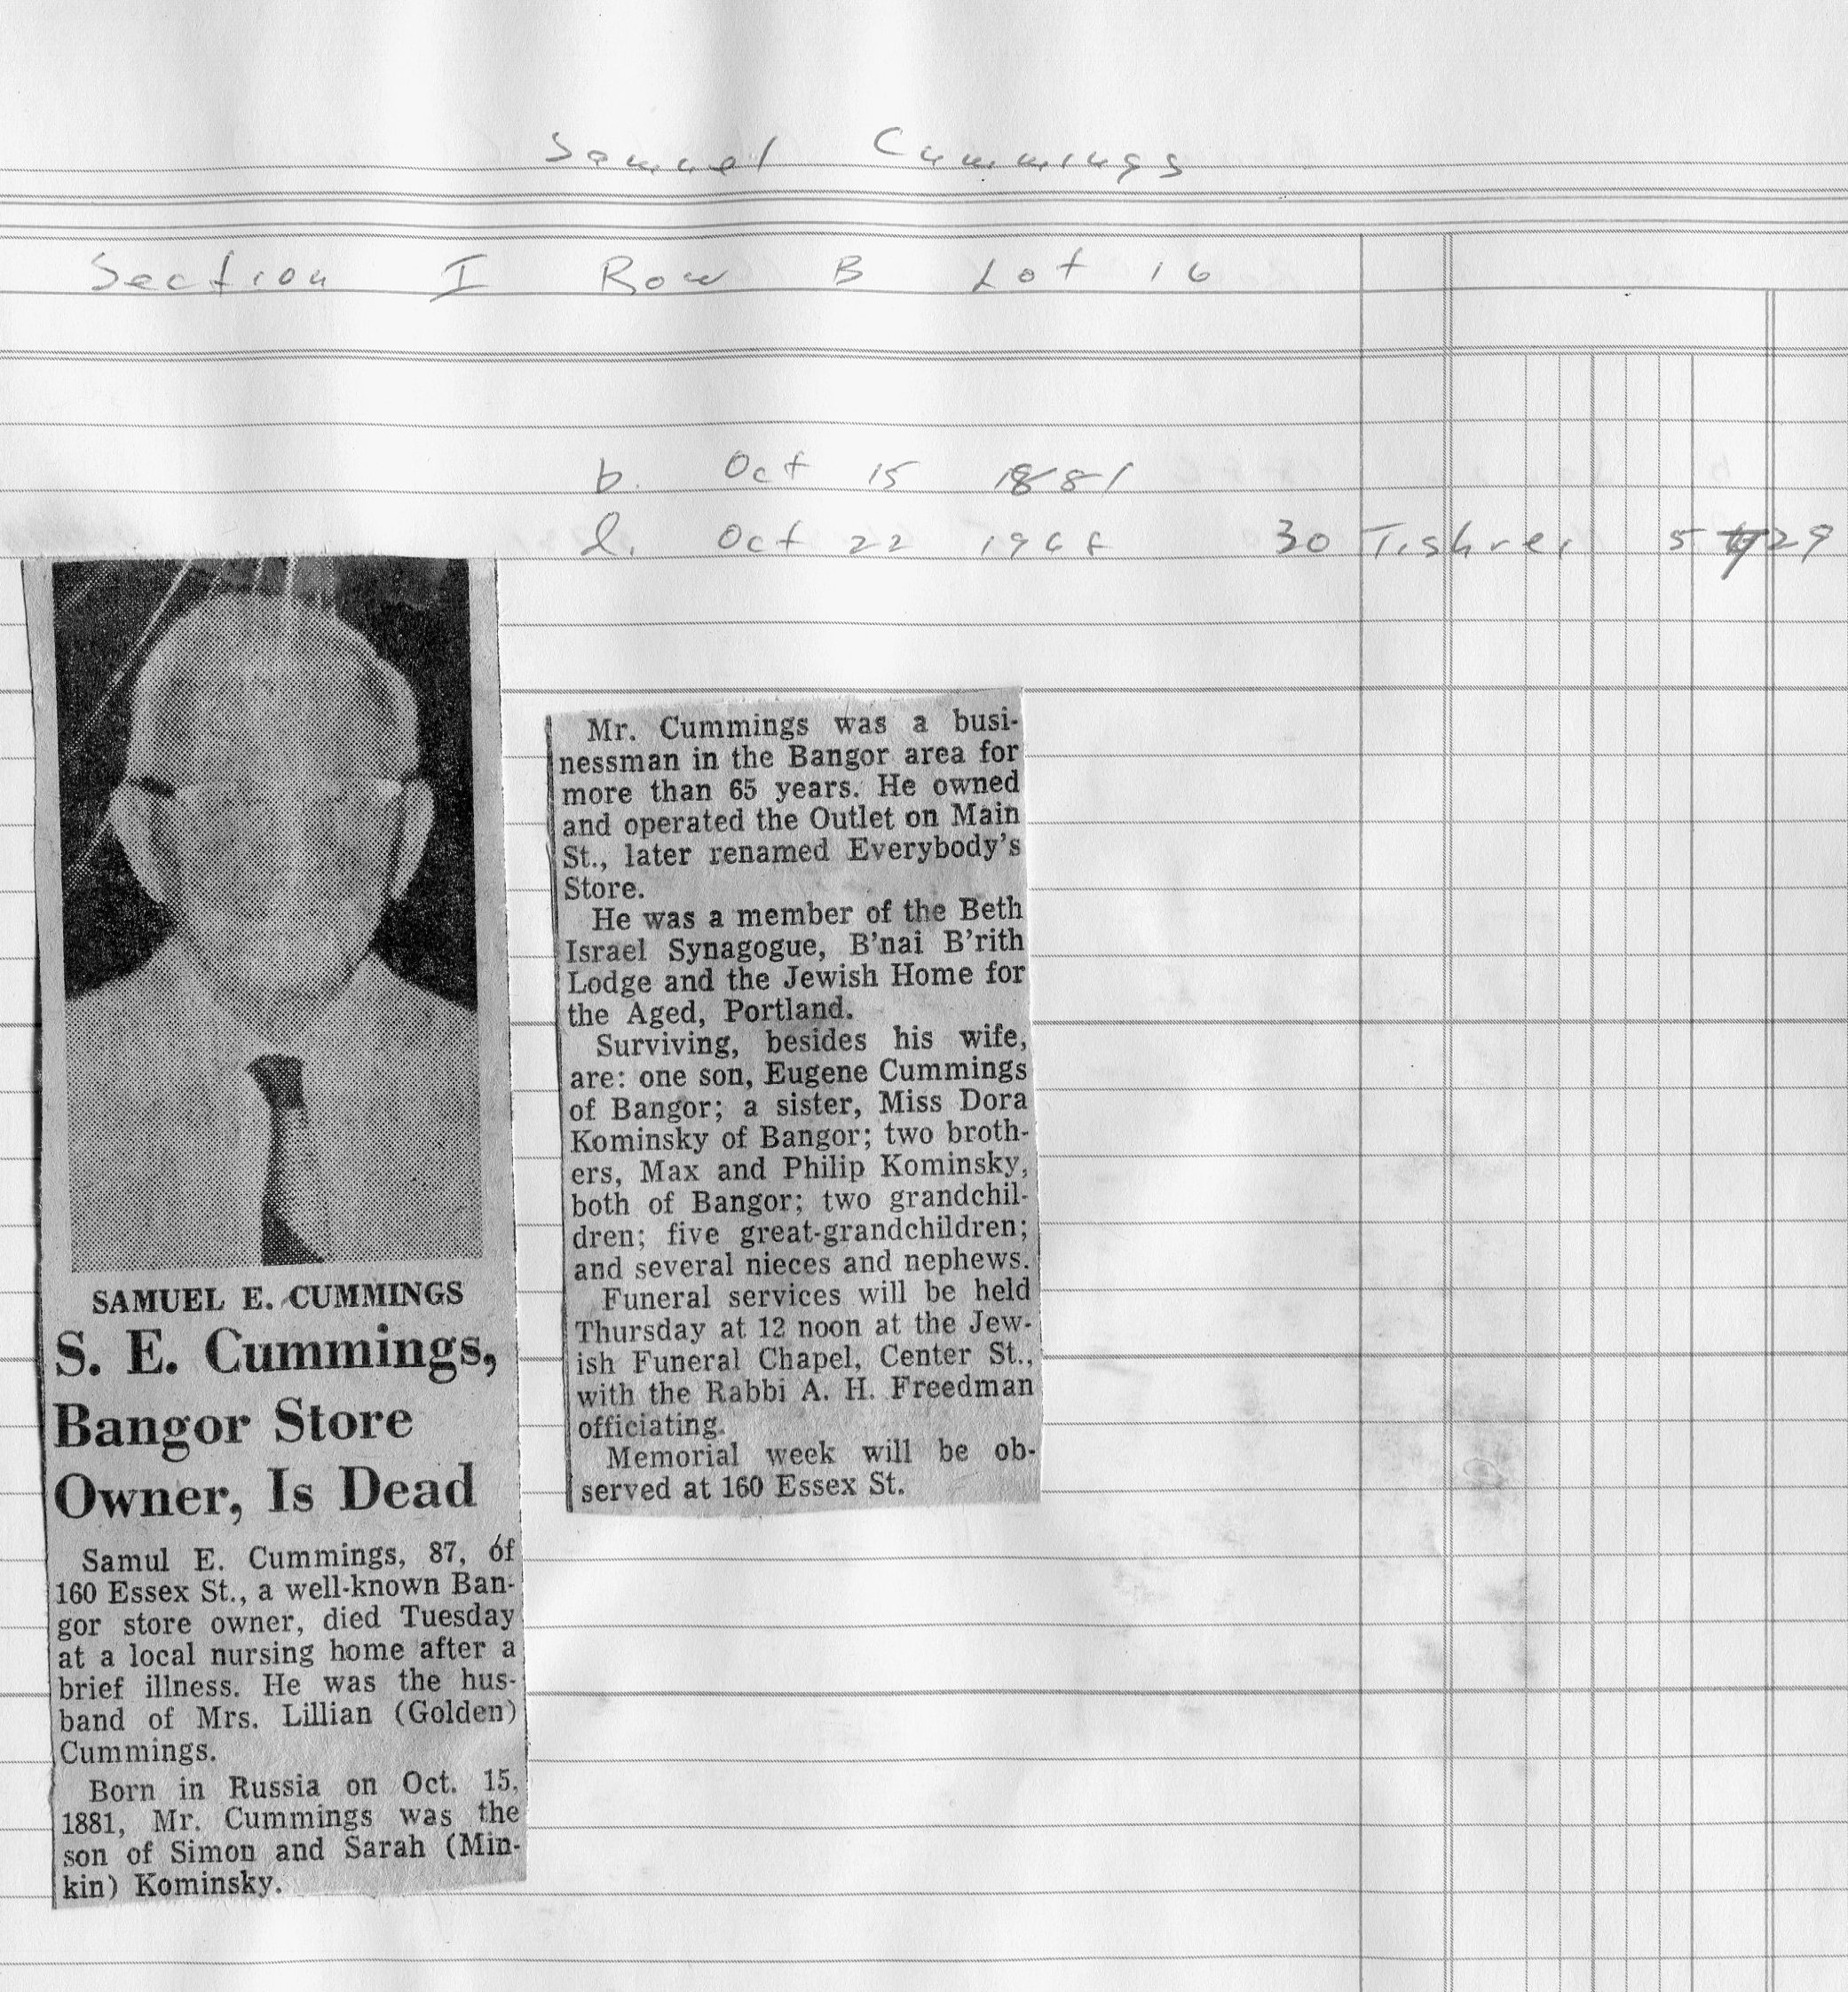 Samuel Cummings
Section I Row B Lot 16
b. Oct 15 1881
d. Oct 22 1968 30 Tishrei 5729
SAMUEL E. CUMMINGS
S. E. Cummings,
Bangor Store
Owner, Is Dead
Samul E. Cummings, 87, of
160 Essex St., a well-known Ban-
gor store owner, died Tuesday
at a local nursing home after a
brief illness. He was the hus-
band of Mrs. Lillian (Golden)
Cummings.
Born in Russia on Oct. 15,
1881, Mr. Cummings was the
son of Simon and Sarah (Min-
kin) Kominsky.
Mr. Cummings was a busi-
nessman in the Bangor area for
more than 65 years. He owned
and operated the Outlet on Main
St., later renamed Everybody's
Store.
He was a member of the Beth
Israel Synagogue, B'nai B'rith
Lodge and the Jewish Home for
the Aged, Portland.
Surviving, besides his wife,
are: one son, Eugene Cummings
of Bangor; a sister, Miss Dora
Kominsky of Bangor; two broth-
ers, Max and Philip Kominsky,
both of Bangor; two grandchil-
dren; five great-grandchildren;
and several nieces and nephews.
Funeral services will be held
Thursday at 12 noon at the Jew-
ish Funeral Chapel, Center St.,
with the Rabbi A. H. Freedman
officiating.
Memorial week will be ob-
served at 160 Essex St.